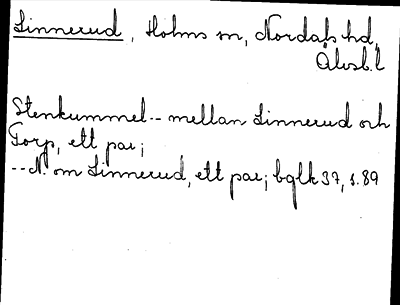 Linnerud, Holms sn, Nordals hd,
Älvsb. l
Stenkummel-- mellan Linnerud och
Torp, ett par;
--N. om Linnerud, ett par; bglk 37, s. 89